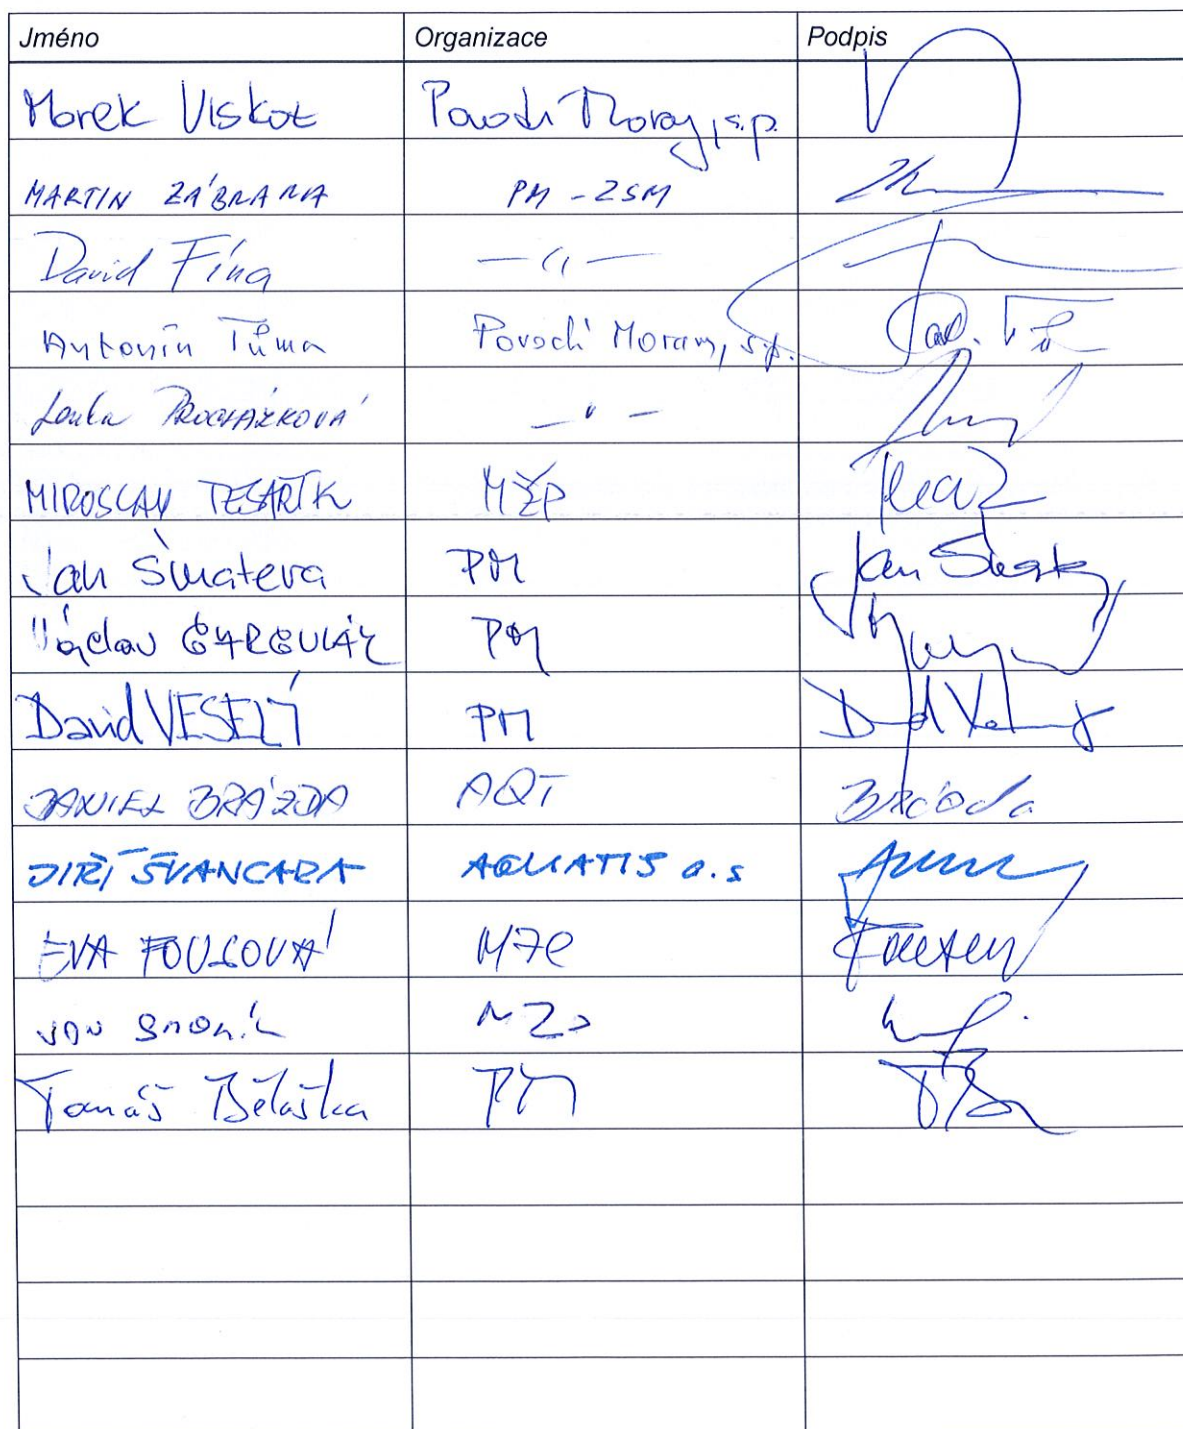 Jméno Organizace Podpis
Marek Viskot Povodí Moravy, s.p.
MARTIN ZÁBRANA PM - ZSM
David Fína —〃—
Antonín Tůma Povodí Moravy, s.p.
Lenka PROCHÁZKOVÁ —〃—
MIROSLAV TESAŘÍK MŽP
Jan Šmatera PM Jan
Václav GARGULÁK PM
David VESELÝ PM David
DANIEL BRÁZDA AQT Brázda
JIŘÍ ŠVANCARA AQUATIS a.s
EVA FOUSOVÁ MZe
MZe
Tomáš Bělaška PM